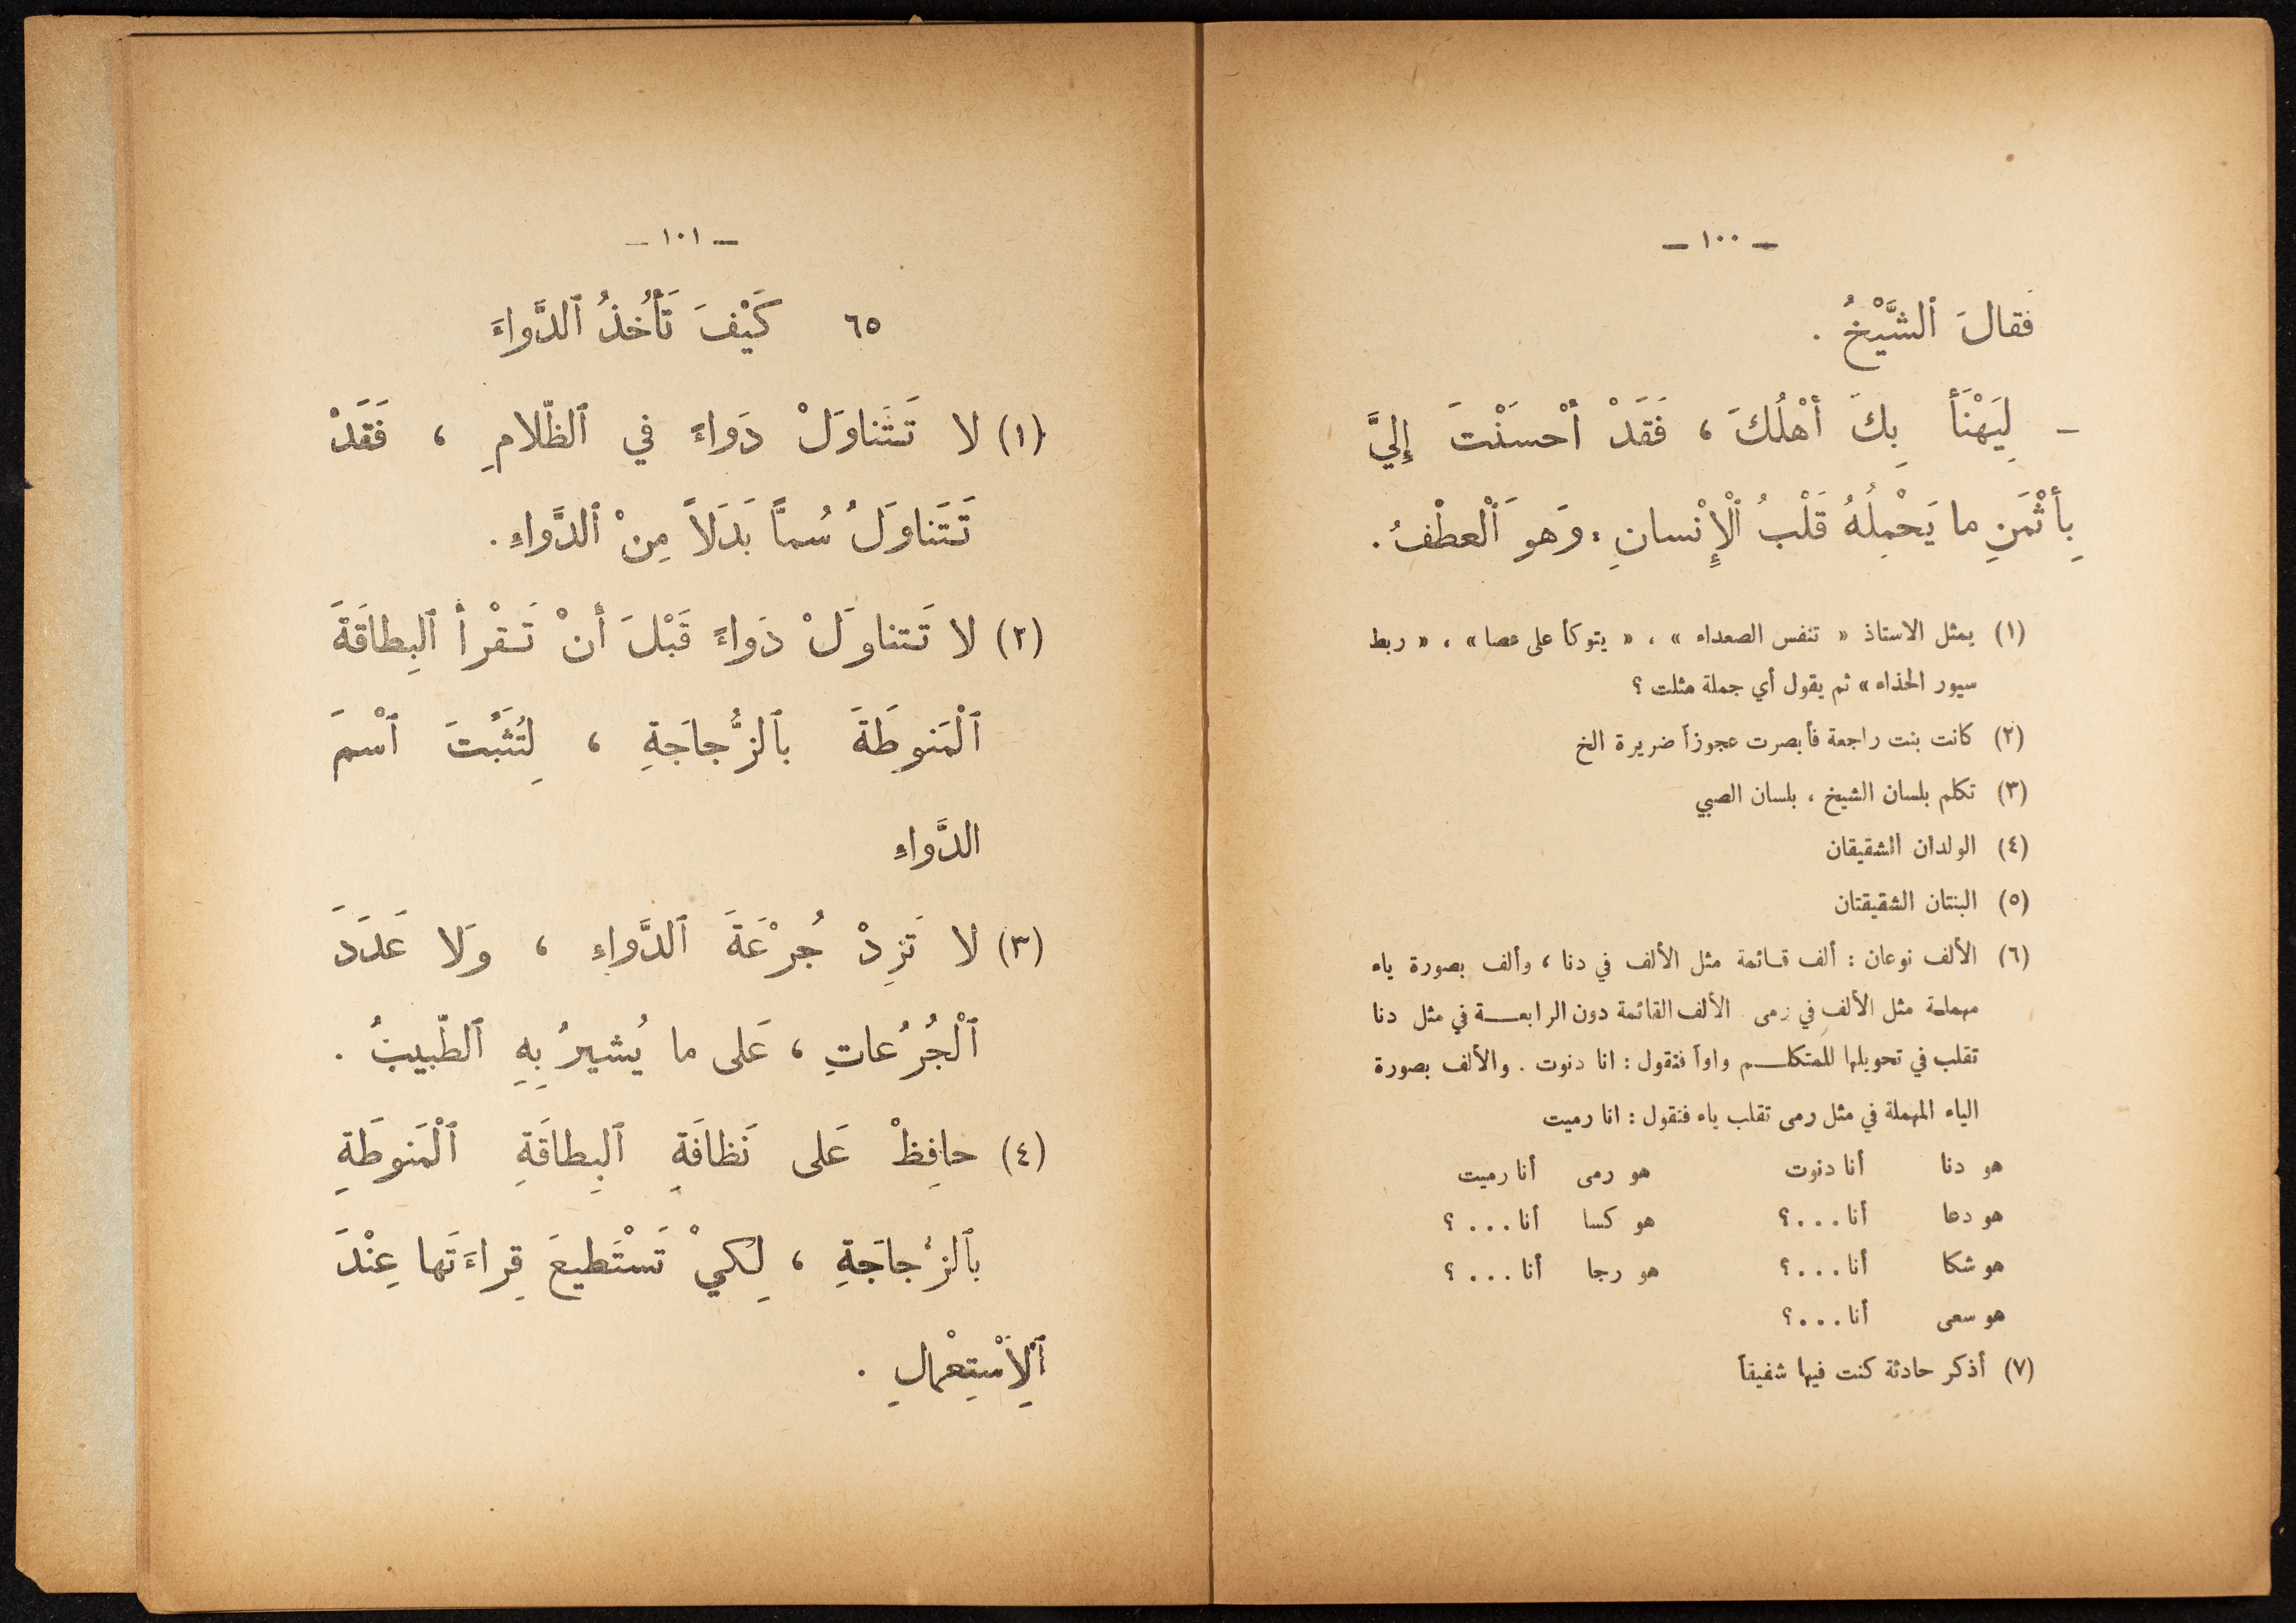 – ١٠٠ –
فَقالَ ٱلشَّيْخُ .
– لِيَهْنَأ بِكَ أهْلُكَ ، فَقَدْ أحْسَنْتَ إِلَيَّ
بِأثْمَنِ ما يَحْمِلُهُ قَلْبُ ٱلْإِنْسانِ : وَهوَ ٱلْعطْفُ .
(١) يمثل الاستاذ « تنفس الصعداء » ، « يتوكأ على عصا » ، « ربط
سيور الحذاء » ثم يقول أي جملة مثلت ؟
(٢) كانت بنت راجعة فأبصرت عجوزاً ضريرة الخ
(٣) تكلم بلسان الشيخ ، بلسان الصبي
(٤) الولدان الشقيقان
(٥) البنتان الشقيقتان
(٦) الألف نوعان : ألف قائمة مثل الألف في دنا ، وألف بصورة ياء
مهملة مثل الألف في رمى الألف القائمة دون الرابعـــة في مثل دنا
تقلب في تحويلها للمتكلـــم واواً فتقول : انا دنوت . والألف بصورة
الياء المهملة في مثل رمى تقلب ياء فنقول : انا رميت
هو دنا أنا دنوت هو رمى أنا رميت
هو دعا أنا . . . ؟ هو كسا أنا . . . ؟
هو شكا أنا . . . ؟ هو رجا أنا . . . ؟
هو سعى أنا . . . ؟
(٧) أذكر حادثة كنت فيها شفيقاً
– ١٠١ –
٦٥ كَيْفَ تَأْخُذُ ٱلدَّواءَ
(١) لا تَتَناوَلْ دَواءً في ٱلظّلامِ ، فَقَدْ
تَتَناوَلُ سُمّاً بَدَلاً مِنْ ٱلدَّواءِ .
(٢) لا تَتناوَلْ دَواءً قَبْلَ أنْ تَـقْرأ ٱلبِطاقَةَ
ٱلْمَنوطَةَ بٱلزُّجاجَةِ ، لِتُثَبِّتَ ٱسْمَ
الدَّواءِ
(٣) لا تَزِدْ جُرْعَةَ ٱلدَّواءِ ، وَلا عَدَدَ
ٱلْجُرُعاتِ ، عَلى ما يُشيرُ بِهِ ٱلطّبيبُ .
(٤) حافِظْ عَلى نَظافَةِ ٱلبِطاقَةِ ٱلْمَنوطَةِ
بٱلزُّجاجَةِ ، لِكَيْ تَسْتَطيعَ قِراءَتَها عِنْدَ
ٱلِاسْتِعْمالِ .